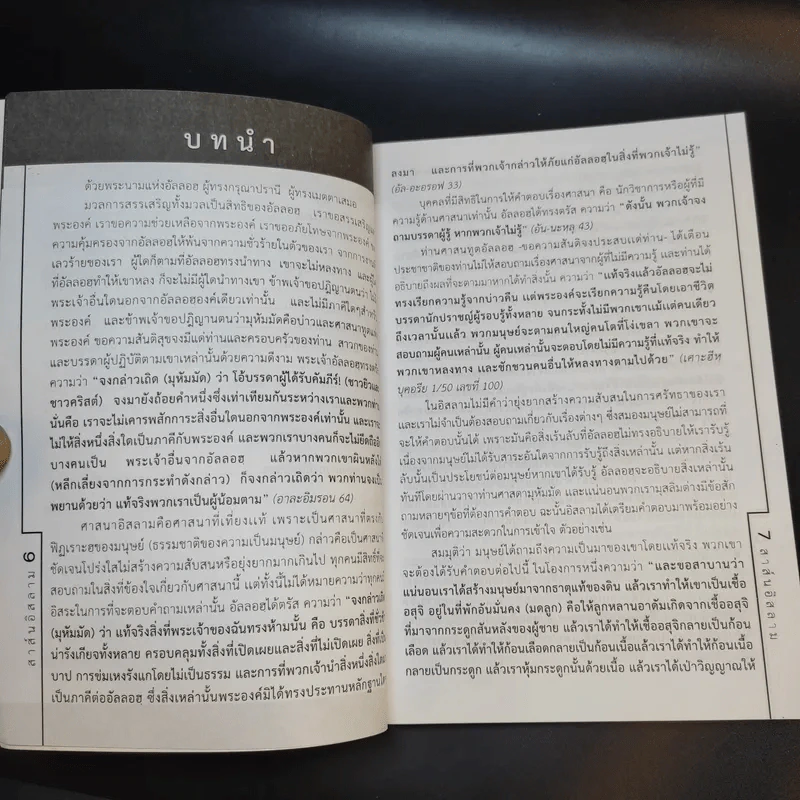 บทนำ
ด้วยพระนามแห่งอัลลอฮ ผู้ทรงกรุณาปรานี ผู้ทรงเมตตาเสมอ
มวลการสรรเสริญทั้งมวลเป็นสิทธิของอัลลอฮ เราขอสรรเสริญ
พระองค์ เราขอความช่วยเหลือจากพระองค์ เราขออภัยโทษจากพระองค์
ความคุ้มครองจากอัลลอฮให้พ้นจากความชั่วร้ายในตัวของเรา จากการงาน
เลวร้ายของเรา ผู้ใดก็ตามที่อัลลอฮทรงนำทาง เขาจะไม่หลงทาง และผู้ใด
ที่อัลลอฮทำให้เขาหลง ก็จะไม่มีผู้ใดนำทางเขา ข้าพเจ้าขอปฏิญาณตนว่า
พระเจ้าอื่นใดนอกจากอัลลอฮองค์เดียวเท่านั้น และไม่มีภาคีใดๆสำหรับ
พระองค์ และข้าพเจ้าขอปฏิญาณตนว่ามุหัมมัดคือบ่าวและศาสนทูตของ
พระองค์ ขอความสันติสุขจงมีแด่ท่านและครอบครัวของท่าน สาวกของท่าน
และบรรดาผู้ปฏิบัติตามเขาเหล่านั้นด้วยความดีงาม พระเจ้าอัลลอฮทรงตรัส
ความว่า "จงกล่าวเถิด (มุหัมมัด) ว่า โอ้บรรดาผู้ได้รับคัมภีร์! (ชาวยิวและ
ชาวคริสต์) จงมายังถ้อยคำหนึ่งซึ่งเท่าเทียมกันระหว่างเราและพวกท่าน
นั่นคือ เราจะไม่เคารพสักการะสิ่งอื่นใดนอกจากพระองค์เท่านั้น และเราจะ
ไม่ให้สิ่งหนึ่งสิ่งใดเป็นภาคีกับพระองค์ และพวกเราบางคนก็จะไม่ยึดถืออีก
บางคนเป็น พระเจ้าอื่นจากอัลลอฮ แล้วหากพวกเขาผินหลังให้
(หลีกเลี่ยงจากการกระทำดังกล่าว) ก็จงกล่าวเถิดว่า พวกท่านจงเป็น
พยานด้วยว่า แท้จริงพวกเราเป็นผู้น้อมตาม" (อาละอิมรอน 64)
ศาสนาอิสลามคือศาสนาที่เที่ยงแท้ เพราะเป็นศาสนาที่ตรงกับ
ฟิฏเราะฮของมนุษย์ (ธรรมชาติของความเป็นมนุษย์) กล่าวคือเป็นศาสนาที่
ชัดเจนโปร่งใสไม่สร้างความสับสนหรือยุ่งยากมากเกินไป ทุกคนมีสิทธิ์ที่จะ
สอบถามในสิ่งที่ข้องใจเกี่ยวกับศาสนานี้ แต่ทั้งนี้ไม่ได้หมายความว่าทุกคน
อิสระในการที่จะตอบคำถามเหล่านั้น อัลลอฮได้ตรัส ความว่า "จงกล่าวเถิด
(มุหัมมัด) ว่า แท้จริงสิ่งที่พระเจ้าของฉันทรงห้ามนั้น คือ บรรดาสิ่งที่ชั่วช้า
น่ารังเกียจทั้งหลาย ครอบคลุมทั้งสิ่งที่เปิดเผยและสิ่งที่ไม่เปิดเผย สิ่งที่เป็น
บาป การข่มเหงรังแกโดยไม่เป็นธรรม และการที่พวกเจ้านำสิ่งหนึ่งสิ่งใด
เป็นภาคีต่ออัลลอฮ ซึ่งสิ่งเหล่านั้นพระองค์มิได้ทรงประทานหลักฐานใด
สาส์นอิสลาม 6
ลงมา และการที่พวกเจ้ากล่าวให้ภัยแก่อัลลอฮในสิ่งที่พวกเจ้าไม่รู้"
(อัล-อะอรอฟ 33)
บุคคลที่มีสิทธิในการให้คำตอบเรื่องศาสนา คือ นักวิชาการหรือผู้ที่มี
ความรู้ด้านศาสนาเท่านั้น อัลลอฮได้ทรงตรัส ความว่า "ดังนั้น พวกเจ้าจง
ถามบรรดาผู้รู้ หากพวกเจ้าไม่รู้" (อัน-นะหลฺ 43)
ท่านศาสนทูตอัลลอฮ -ขอความสันติจงประสบแด่ท่าน- ได้เตือน
ประชาชาติของท่านไม่ให้สอบถามเรื่องศาสนาจากผู้ที่ไม่มีความรู้ และท่านได้
อธิบายถึงผลที่จะตามมาหากได้ทำสิ่งนั้น ความว่า "แท้จริงแล้วอัลลอฮจะไม่
ทรงเรียกความรู้จากบ่าวคืน แต่พระองค์จะเรียกความรู้คืนโดยเอาชีวิต
บรรดานักปราชญ์ผู้รอบรู้ทั้งหลาย จนกระทั่งไม่มีพวกเขาแม้แต่คนเดียว
ถึงเวลานั้นแล้ว พวกมนุษย์จะตามคนใหญ่คนโตที่โง่เขลา พวกเขาจะ
สอบถามผู้คนเหล่านั้น ผู้คนเหล่านั้นจะตอบโดยไม่มีความรู้ที่แท้จริง ทำให้
พวกเขาหลงทาง และชักชวนคนอื่นให้หลงทางตามไปด้วย" (เศาะฮีหฺ
บุคอรีย 1/50 เลขที่ 100)
ในอิสลามไม่มีคำว่ายุ่งยากสร้างความสับสนในการศรัทธาของเรา
และเราไม่จำเป็นต้องสอบถามเกี่ยวกับเรื่องต่างๆ ซึ่งสมองมนุษย์ไม่สามารถที่
จะให้คำตอบนั้นได้ เพราะมันคือสิ่งเร้นลับที่อัลลอฮไม่ทรงอธิบายให้เรารับรู้
เนื่องจากมนุษย์ไม่ได้รับสาระอันใดจากการรับรู้ถึงสิ่งเหล่านั้น แต่หากสิ่งเร้น
ลับนั้นเป็นประโยชน์ต่อมนุษย์หากเขาได้รับรู้ อัลลอฮจะอธิบายสิ่งเหล่านั้น
ทันทีโดยผ่านวาจาท่านศาสดามุหัมมัด และแน่นอนพวกเรามุสลิมต่างมีข้อสัก
ถามหลายๆข้อที่ต้องการคำตอบ ฉะนั้นอิสลามได้เตรียมคำตอบมาพร้อมอย่าง
ชัดเจนเพื่อความสะดวกในการเข้าใจ ตัวอย่างเช่น
สมมุติว่า มนุษย์ได้ถามถึงความเป็นมาของเขาโดยแท้จริง พวกเขา
จะต้องได้รับคำตอบต่อไปนี้ ในโองการหนึ่งความว่า "และขอสาบานว่า
แน่นอนเราได้สร้างมนุษย์มาจากธาตุแท้ของดิน แล้วเราทำให้เขาเป็นเชื้อ
อสุจิ อยู่ในที่พักอันมั่นคง (มดลูก) คือให้ลูกหลานอาดัมเกิดจากเชื้ออสุจิ
ที่มาจากกระดูกสันหลังของผู้ชาย แล้วเราได้ทำให้เชื้ออสุจิกลายเป็นก้อน
เลือด แล้วเราได้ทำให้ก้อนเลือดกลายเป็นก้อนเนื้อแล้วเราได้ทำให้ก้อนเนื้อ
กลายเป็นกระดูก แล้วเราหุ้มกระดูกนั้นด้วยเนื้อ แล้วเราได้เป่าวิญญาณให้
7 สาส์นอิสลาม